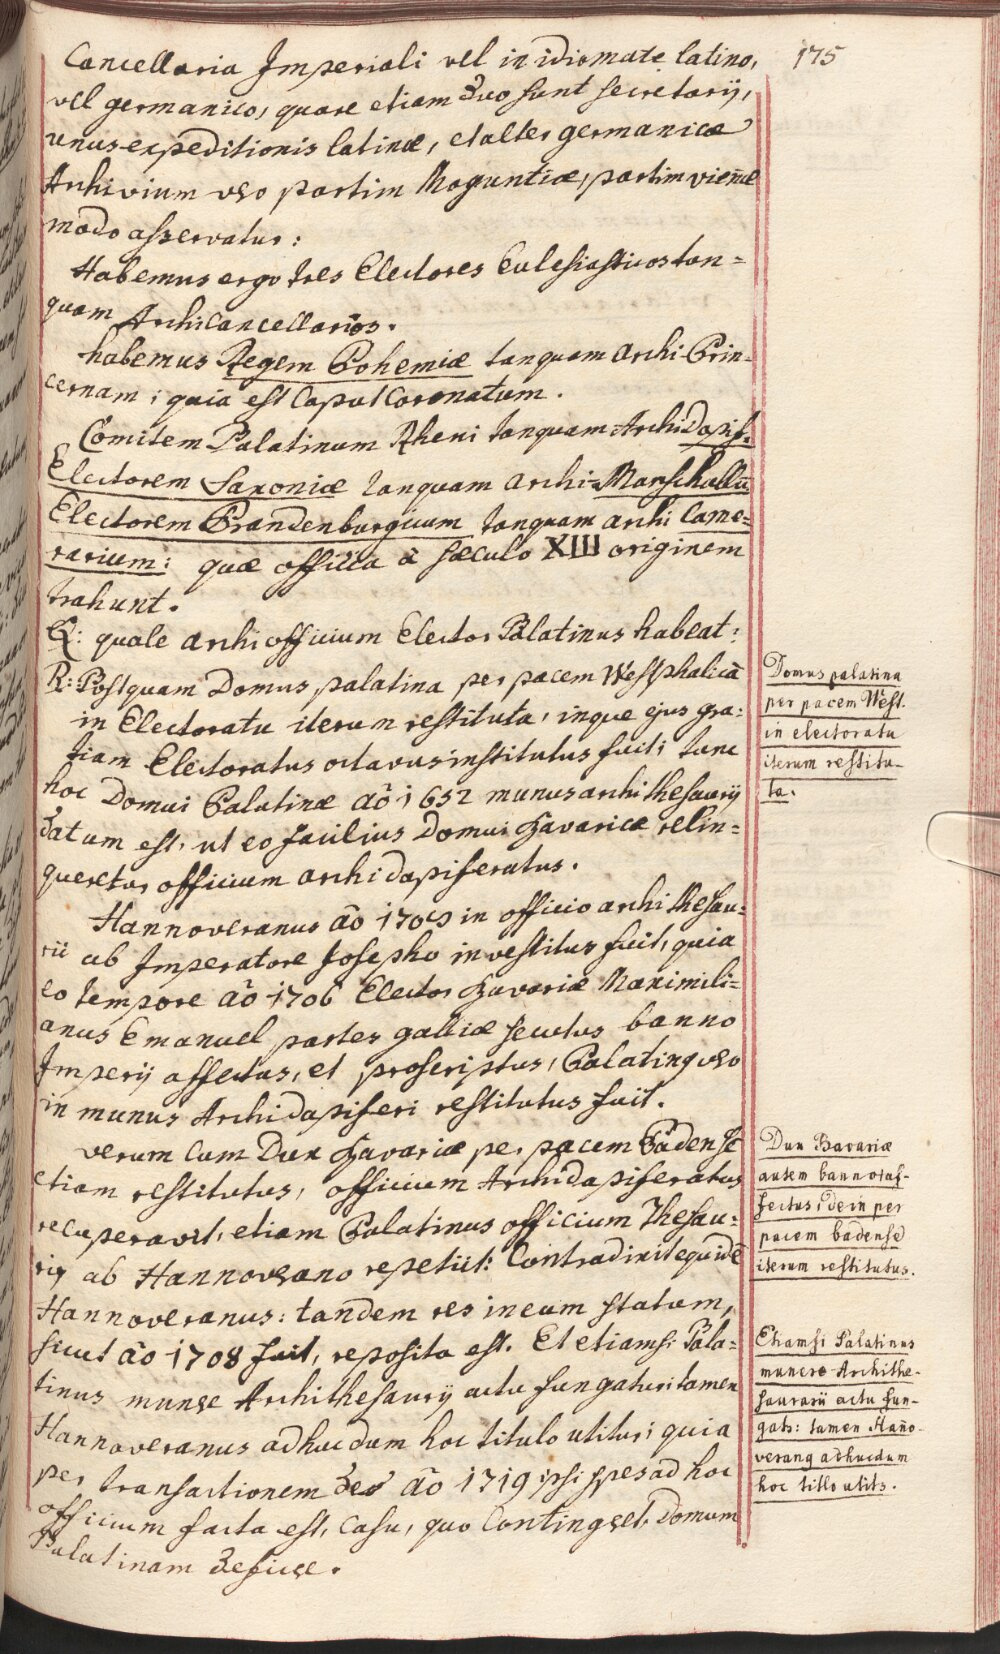 175
Cancellaria Imperiali vel in idiomate latino,
vel germanico, quare etiam duo sunt secretarij,
unus expeditionis latinæ, et alter germanicæ
Archivium v͠o partim Moguntiæ, partim vieñæ
modo asservatur:
Habemus ergo tres Electores Eclesiasticos tan=
quam Archicancellarios.
habemus Regem Bohemiæ tanquam archi-Prin=
cernam; quia est Caput Coronatum.
Comitem Palatinum Rheni tanquam Archidapif.
Electorem Saxoniæ tanquam archi-Marschallū
Electorem Brandenburgicum tanquam archi Came=
rarium: quæ officia à sæculo XIII originem
trahunt.
Q: quale archiofficium Elector Palatinus habeat:
R: Postquam Domus palatina per pacem Westphalicā
in Electoratu iterum restituta, inque ejus gra:
tiam Electoratus octavus institutus fuit; tunc
hoc Domui Palatinæ aõ 1652 munus archithesaurij
datum est, ut eo facilius Domui Bavaricæ relin=
queretur officium archidapiferatus.
Hannoveranus aõ in officio archithesau:
rii ab Imperatore Josepho investitus fuit, quia
eo tempore aõ 1706 Elector Bavariæ Maximili=
anus Emanuel partes galliæ secutus banno
Imperij affectus, et proscriptus, Palatinq v͠o
in munus Archidapiferi restitutus fuit.
verum cum Dux Bavariæ per pacem Badense
etiam restitutus, officium Archidapiferatus
recuperavit, etiam Palatinus officium Thesau:
rij ab Hannoverano repetiit: Contradixit equidē
Hannoveranus: tandem res in eum statum,
sicut aõ 1708 fuit, reposita est. Et etiamsi Pala=
tinus munere Archithesaurij actu fungatur; tamen
Hannoveranus adhucdum hoc titulo utitur; quia
per transactionem de aõ 1719 ipsi spes ad hoc
officium facta est, casu, quo contingeret Domum
Palatinam deficere.
Domus palatina
per pacem West.
in electoratu
iterum restitu-
ta.
Dux Bavariæ
autem banno af-
fectus, dein per
pacem badense
iterum restitutus.
Etiamsi Palatinus
munere Archithe-
saurarii actu fun-
gatr: tamen Haño-
veranq adhucdum
hoc titlo utitr.